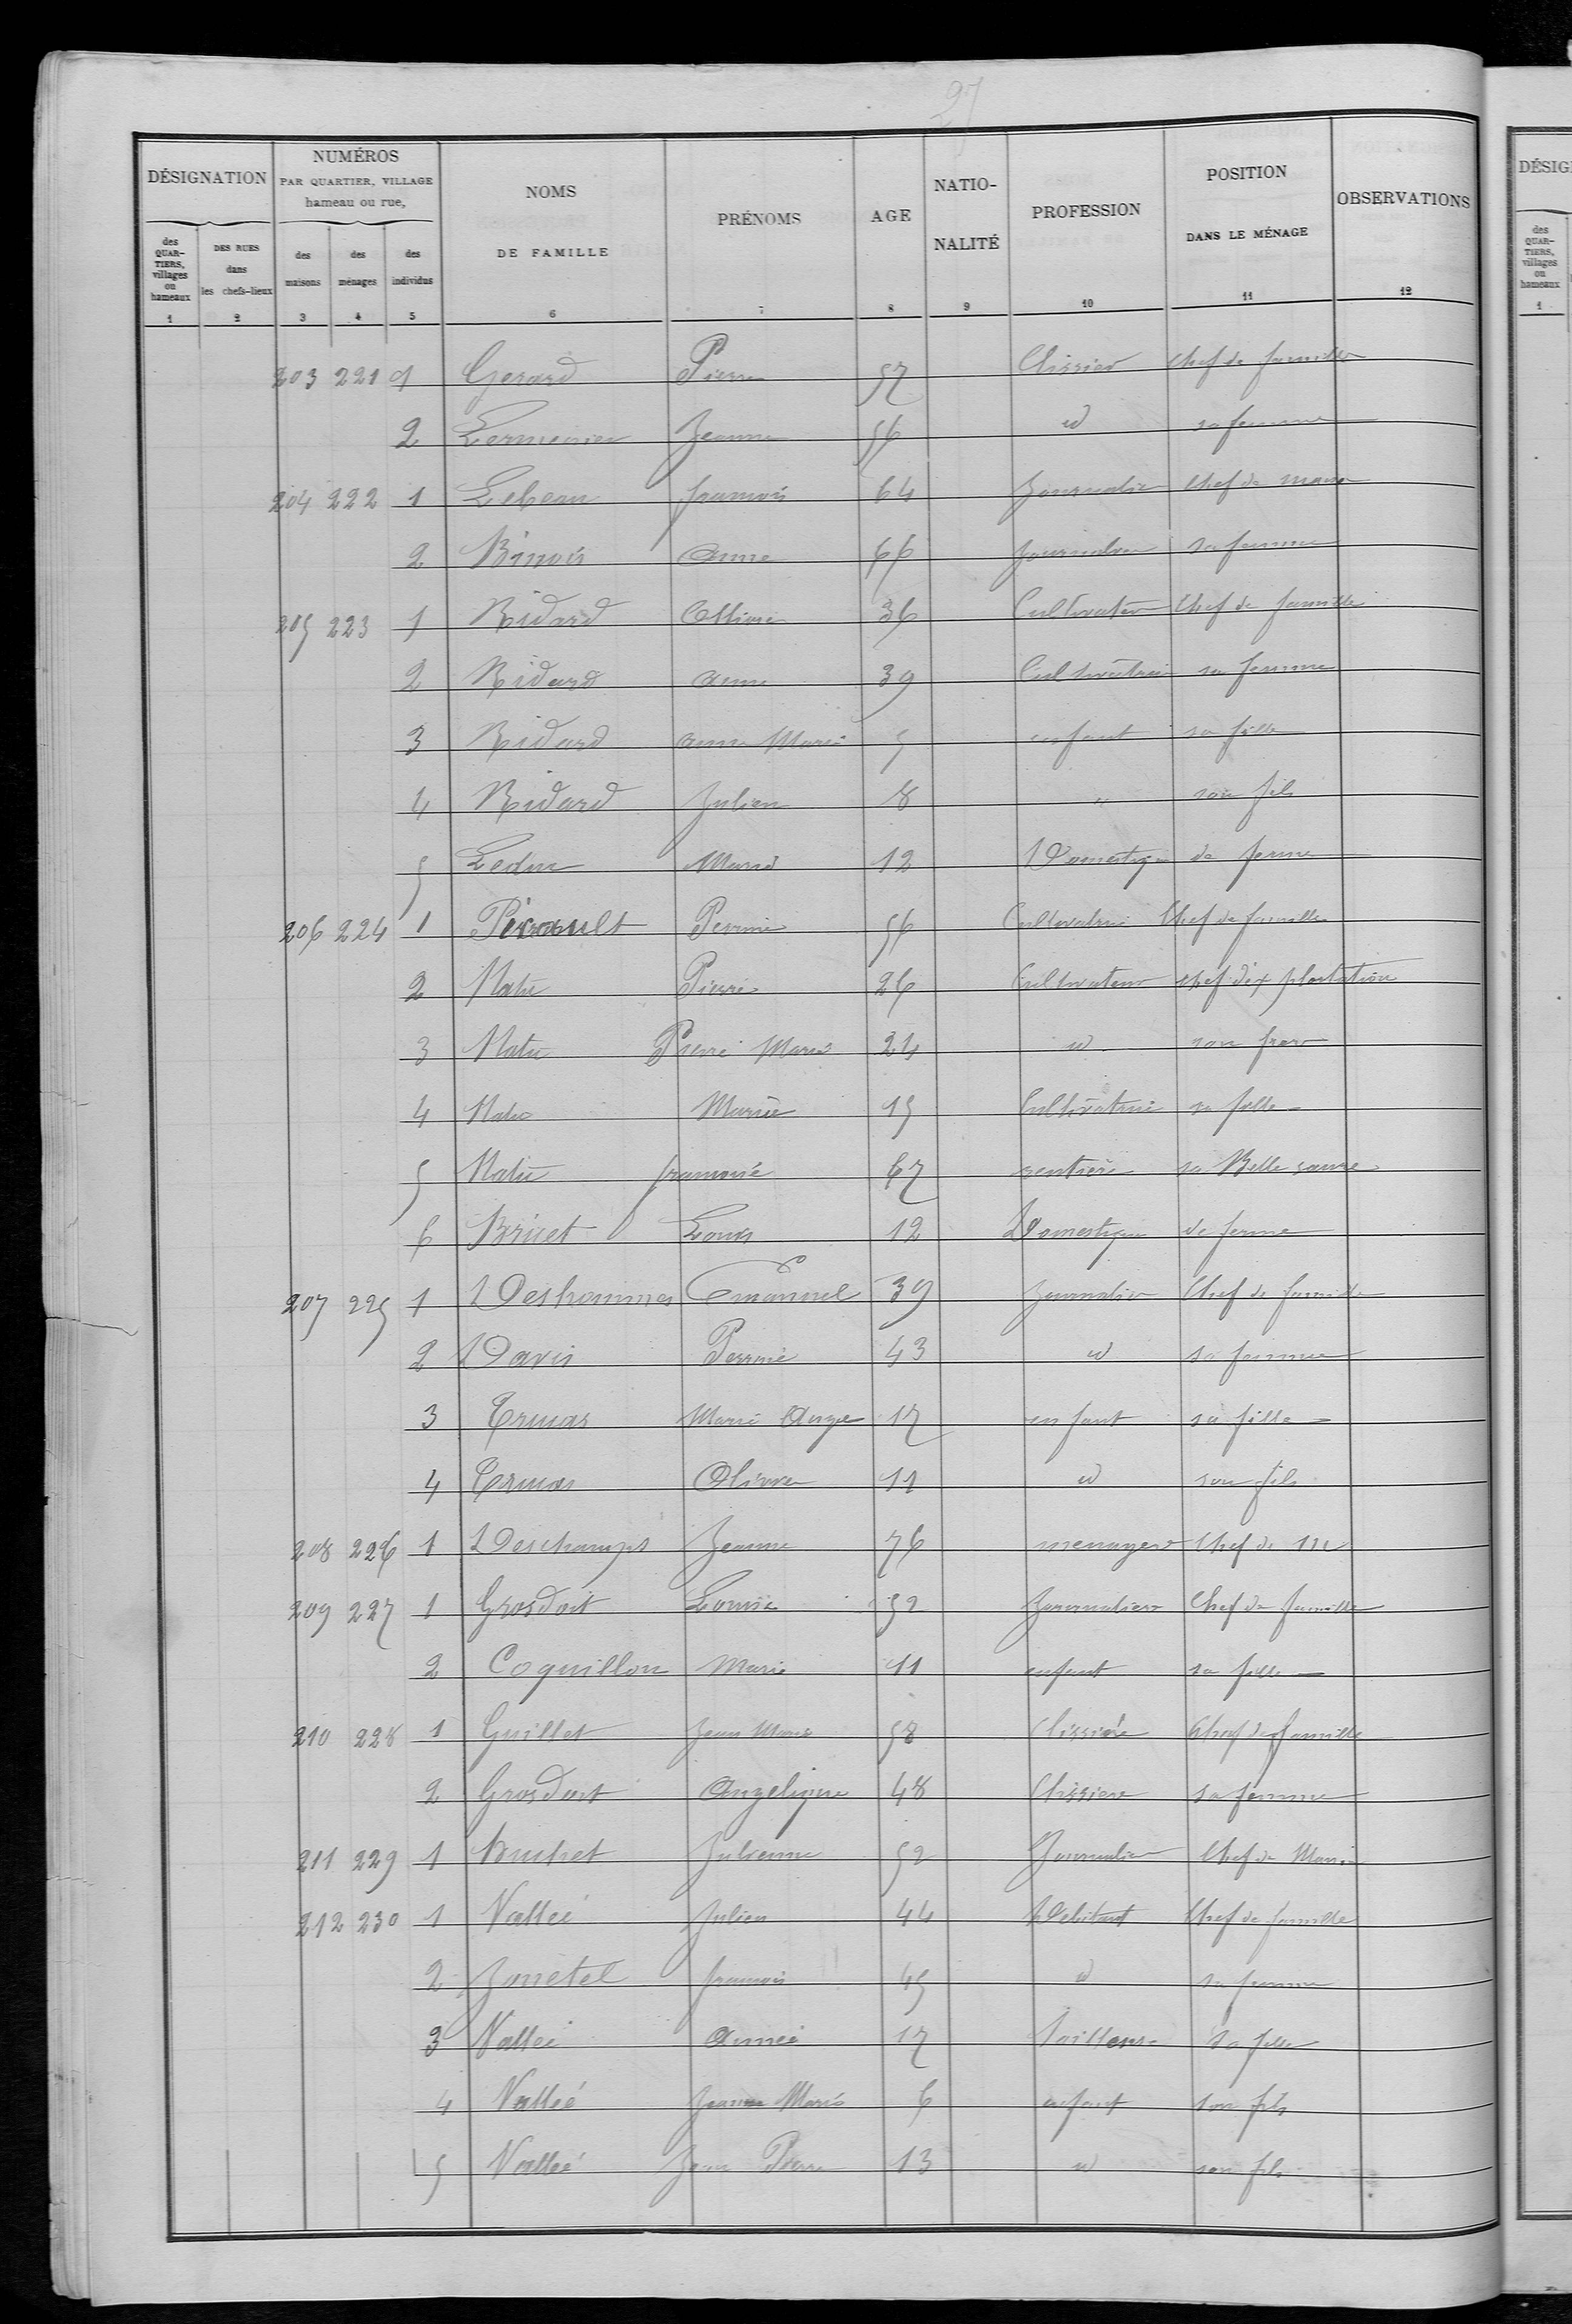 27
DÉSIGNATION
NUMÉROS PAR QUARTIER, VILLAGE hameau ou rue,
NOMS DE FAMILLE
PRÉNOMS
AGE
NATIO-NALITÉ
PROFESSION
POSITION DANS LE MÉNAGE
OBSERVATIONS
des QUAR-TIERS, villages ou hameaux
DES RUES dans les chefs-lieux
des maisons
des ménages
des individus
1 2 3 4 5 6 7 8 9 10 11 12
203 221 1 Gerard Pierre 57 Clissier chef de famille
2 Jeanne 56 id sa femme
204 222 1 Lebeau francois 64 Journalier chef de
2 Binois Anne 66 Journalier sa femme
205 223 1 Ridard Ollivier 36 Cultivateur Chef de famille
2 Ridard anne 39 Cultivatrice sa femme
3 Ridard anne Marie 5 enfant sa fille
4 Ridard Julien 8 " son fils
5 Leduc Marie 12 Domestique de ferme
206 224 1 Pérrault Perrine 56 Cultivatrice Chef de famille
2 Matu Pierre 26 Cultivateur chef d'exploitation
3 Matu Pierre Marie 24 id son frere
4 Matu Marie 15 Cultivatrice sa fille
5 Matu francoise 67 rentière sa Belle soeur
6 Bricet Louis 12 Domestique de ferme
207 225 1 Deshommes Emanuel 39 Journalier Chef de famille
2 Davis Perrine 43 id sa femme
3 Ermas Marie Ange 17 enfant sa fille
4 Ermas Olivier 11 id son fils
208 226 1 Deschamps Jeanne 76 menagere Chef de M
209 227 1 Grosdoit Louise 52 Journaliere Chef de famille
2 Coquillon Marie 11 enfant sa fille
210 228 1 Guillet Jean Marie 58 Clissière Chef de famille
2 Grosdoit Angelique 48 Clissiere sa femme
211 229 1 Bruchet Julienne 52 Journalier Chef de
212 230 1 Vallée Julien 44 Debitant Chef de famille
2 Jouetel francois 45 id sa femme
3 Vallée Aimée 17 Tailleuse sa fille
4 Vallée Jean Marie 6 enfant son fils
5 Vallée Jean Pierre 13 id son fils
DÉSIG
des QUAR-TIERS, villages ou hameaux
1